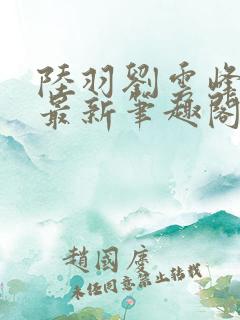 陸羽劉雲峰
最新筆趣閣
趙國虔
未经同意禁止转载